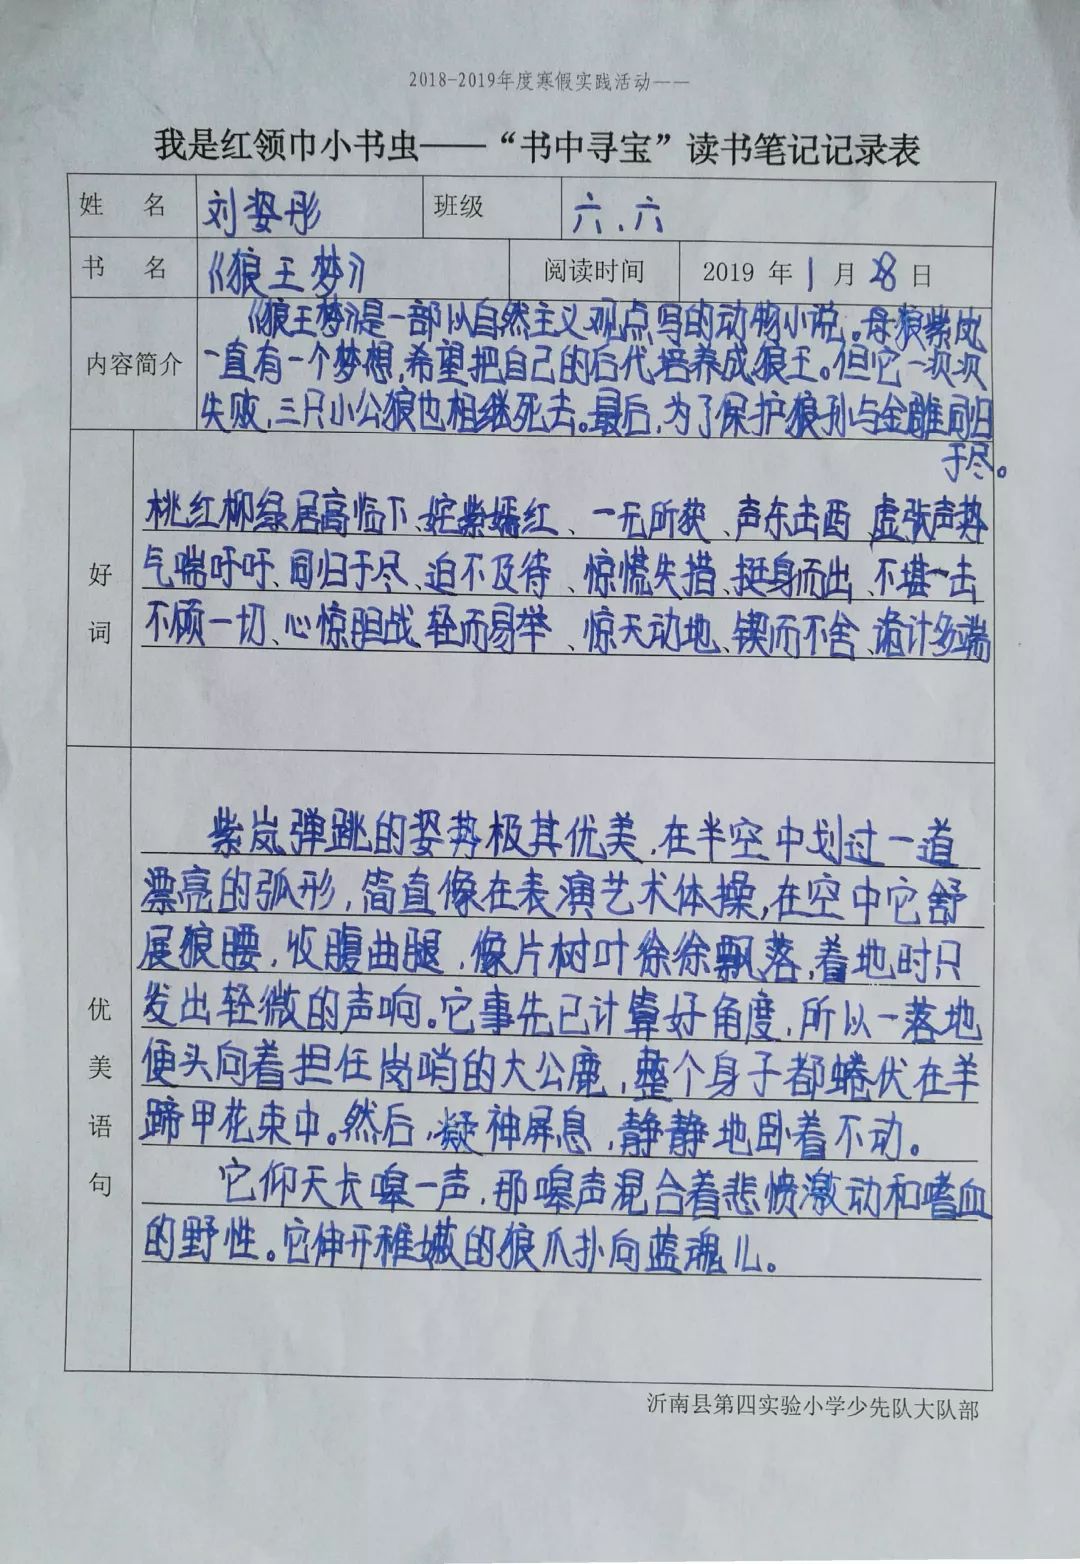 2018-2019年度寒假实践活动——
我是红领巾小书虫——“书中寻宝”读书笔记记录表
姓 名 刘姿彤 班级 六.六
书 名 《狼王梦》 阅读时间 2019 年 1 月 28 日
内容简介
《狼王梦》是一部以自然主义观点写的动物小说。母狼紫岚
一直有一个梦想,希望把自己的后代培养成狼王。但它一次次
失败,三只小公狼也相继死去。最后,为了保护狼孙与金雕同归
于尽。
好词
桃红柳绿、居高临下、姹紫嫣红、一无所获、声东击西、虚张声势
气喘吁吁、同归于尽、迫不及待、惊慌失措、挺身而出、不堪一击
不顾一切、心惊胆战、轻而易举、惊天动地、锲而不舍、诡计多端
优美语句
紫岚弹跳的姿势极其优美,在半空中划过一道
漂亮的弧形,简直像在表演艺术体操,在空中它舒
展狼腰,收腹曲腿,像片树叶徐徐飘落,着地时只
发出轻微的声响。它事先已计算好角度,所以一落地
便头向着担任岗哨的大公鹿,整个身子都蜷伏在羊
蹄甲花束中。然后,凝神屏息,静静地卧着不动。
它仰天长嗥一声,那嗥声混合着悲愤激动和嗜血
的野性。它伸开稚嫩的狼爪扑向蓝魂儿。
沂南县第四实验小学少先队大队部